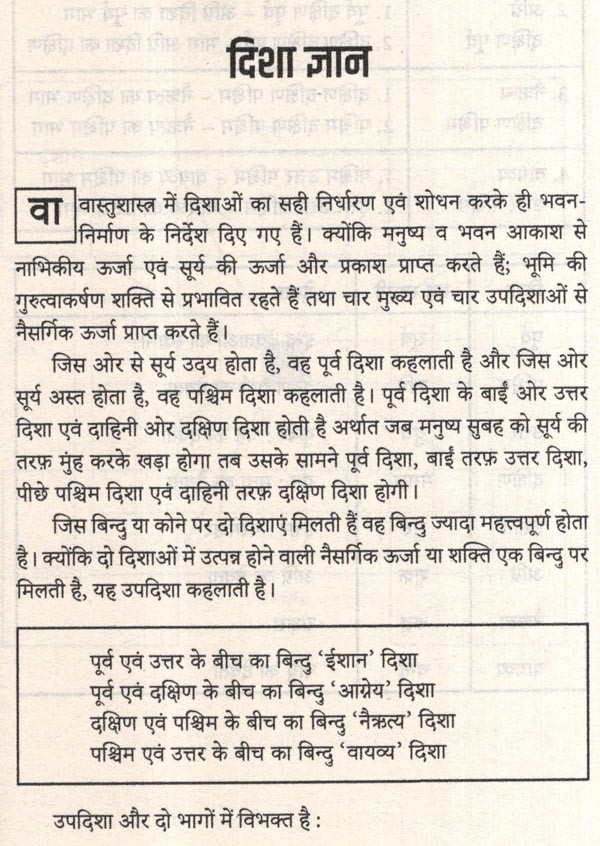 दिशा ज्ञान
वा वास्तुशास्त्र में दिशाओं का सही निर्धारण एवं शोधन करके ही भवन-
निर्माण के निर्देश दिए गए हैं। क्योंकि मनुष्य व भवन आकाश से
नाभिकीय ऊर्जा एवं सूर्य की ऊर्जा और प्रकाश प्राप्त करते हैं; भूमि की
गुरुत्वाकर्षण शक्ति से प्रभावित रहते हैं तथा चार मुख्य एवं चार उपदिशाओं से
नैसर्गिक ऊर्जा प्राप्त करते हैं।
जिस ओर से सूर्य उदय होता है, वह पूर्व दिशा कहलाती है और जिस ओर
सूर्य अस्त होता है, वह पश्चिम दिशा कहलाती है। पूर्व दिशा के बाईं ओर उत्तर
दिशा एवं दाहिनी ओर दक्षिण दिशा होती है अर्थात जब मनुष्य सुबह को सूर्य की
तरफ़ मुंह करके खड़ा होगा तब उसके सामने पूर्व दिशा, बाईं तरफ़ उत्तर दिशा,
पीछे पश्चिम दिशा एवं दाहिनी तरफ़ दक्षिण दिशा होगी।
जिस बिन्दु या कोने पर दो दिशाएं मिलती हैं वह बिन्दु ज्यादा महत्त्वपूर्ण होता
है। क्योंकि दो दिशाओं में उत्पन्न होने वाली नैसर्गिक ऊर्जा या शक्ति एक बिन्दु पर
मिलती है, यह उपदिशा कहलाती है।
पूर्व एवं उत्तर के बीच का बिन्दु ‘ईशान’ दिशा
पूर्व एवं दक्षिण के बीच का बिन्दु ‘आग्नेय’ दिशा
दक्षिण एवं पश्चिम के बीच का बिन्दु ‘नैऋत्य’ दिशा
पश्चिम एवं उत्तर के बीच का बिन्दु ‘वायव्य’ दिशा
उपदिशा और दो भागों में विभक्त है :